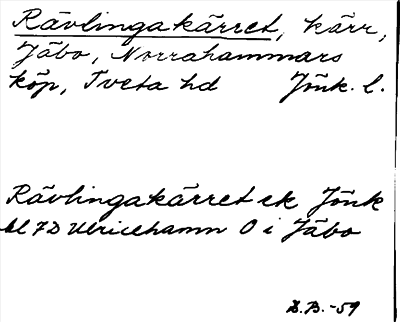 Rävlingakärret, kärr,
Jäbo, Norrahammars
köp, Tveta hd Jönk. l.
Rävlingakärret ek Jönk
bl 7D Ulricehamn O i Jäbo
B.-59